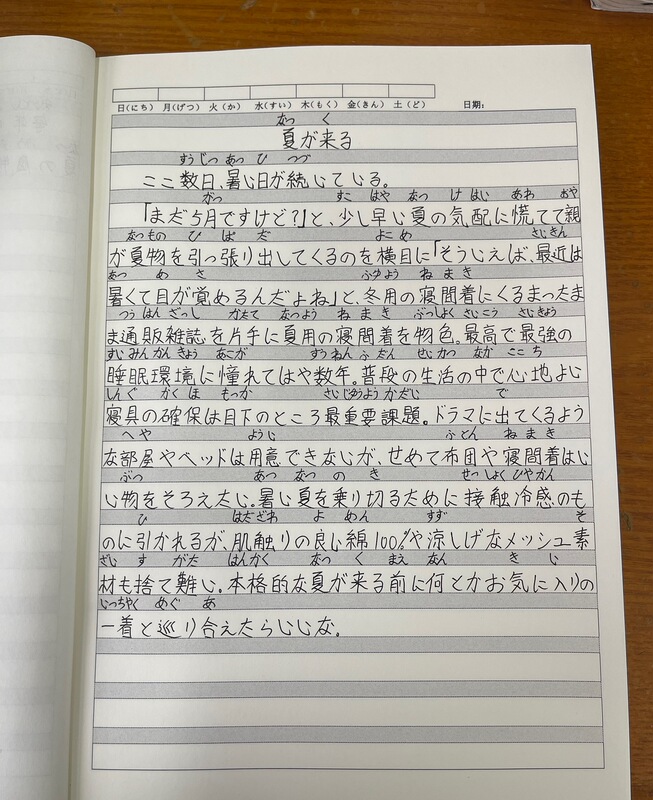 日(にち) 月(げつ) 火(か) 水(すい) 木(もく) 金(きん) 土(ど) 日期:
なつ く
夏が来る
すうじつ あつ ひ つづ
ここ数日、暑い日が続いている。
がつ すこ はや なつ けはい あわ おや
「まだ5月ですけど?」と、少し早い夏の気配に慌てて親
なつもの ひ ぱ だ よこめ さいきん
が夏物を引っ張り出してくるのを横目に「そういえば、最近は
あつ め さ ふゆよう ねまき
暑くて目が覚めるんだよね」と、冬用の寝間着にくるまったま
つうはんざっし かたて なつよう ねまき ぶっしょく さいこう さいきょう
ま通販雑誌を片手に夏用の寝間着を物色。最高で最強の
すいみんかんきょう あこが すうねん ふだん せいかつ なか ここち
睡眠環境に憧れてはや数年。普段の生活の中で心地よい
しんぐ かくほ もっか さいじゅうようかだい で
寝具の確保は目下のところ最重要課題。ドラマに出てくるよう
へや ようい ふとん ねまき
な部屋やベッドは用意できないが、せめて布団や寝間着はい
ぶつ あつ なつ の き せっしょくひやかん
い物をそろえたい。暑い夏を乗り切るために接触冷感のも
ひ はだざわ よ めん すず そ
のに引かれるが肌触りの良い綿100%や涼しげなメッシュ素
ざい す がた ほんかく なつ く まえ なん き い
材も捨て難い。本格的な夏が来る前に何とかお気に入りの
いっちゃく めぐ あ
一着と巡り合えたらいいな。